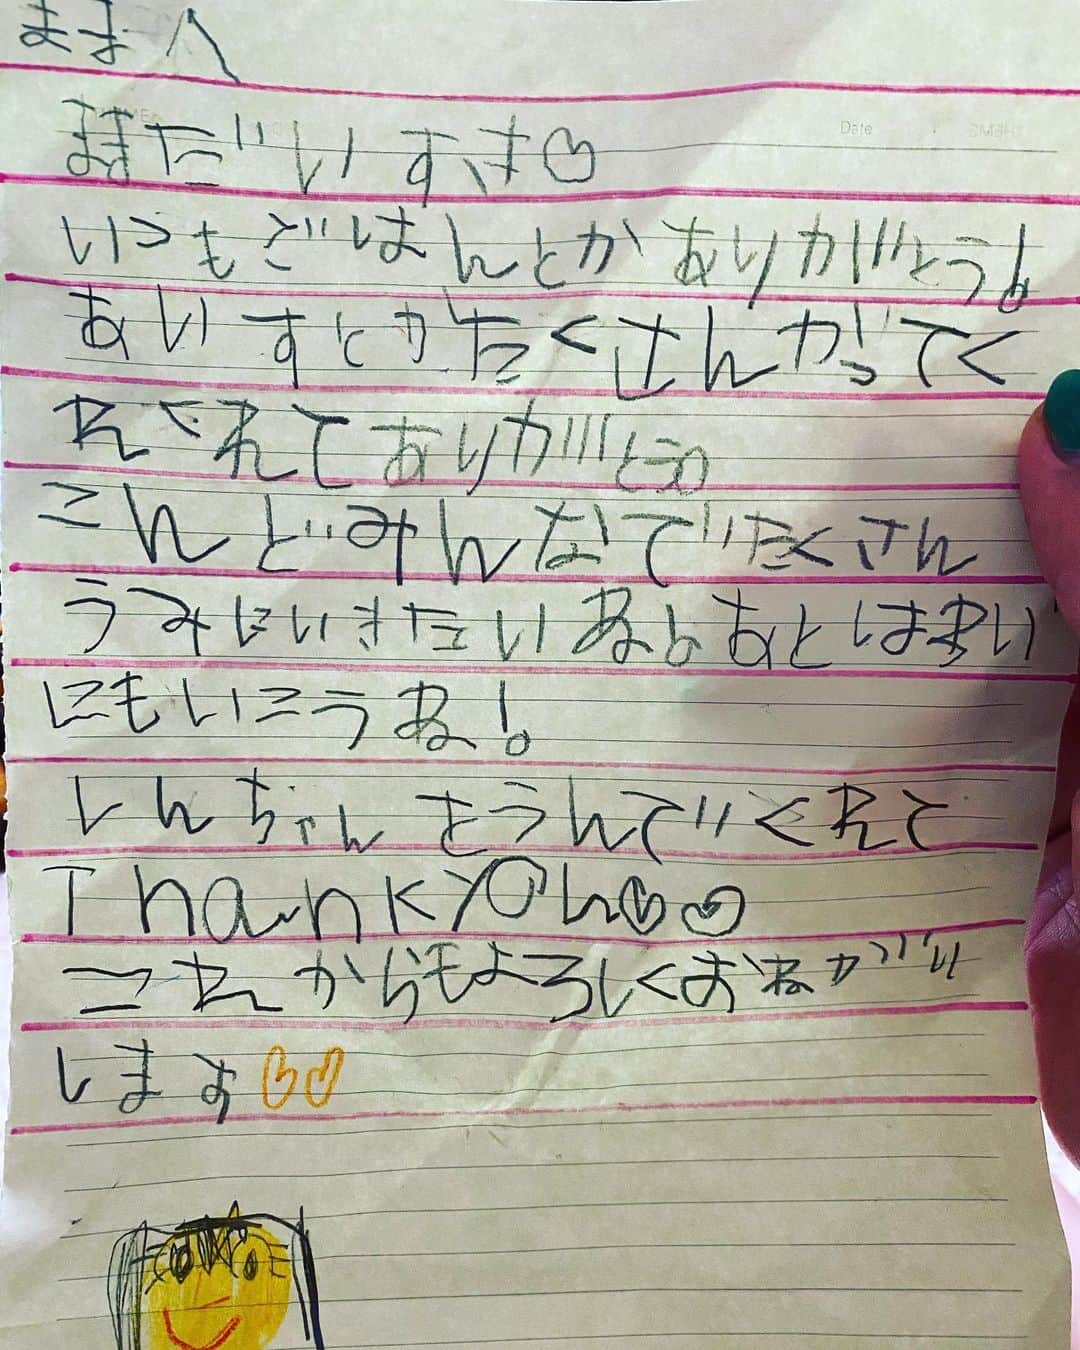 ままへ
Date
まま だいすき♡
いつもごはんとかありがとう!
あいすとかたくさんかってく
れてありがとう
こんどみんなでたくさん
うみにいきたいね!あとはわい
にもいこうね!
しんちゃんをうんでくれて
Thankyou♡♡
これからもよろしくおねがい
します♡♡